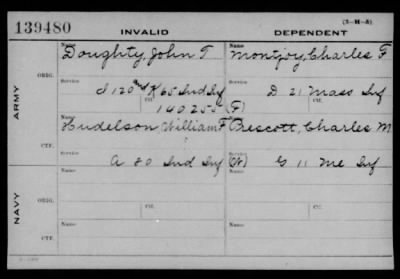 139480 INVALID DEPENDENT (3-M-A)
ARMY
ORIG.
Name Doughty, John T Name Montjoy, Charles F
Service I 120 and K 65 Ind Inf Ctf. 140255 (F) Service D 21 Mass Inf
CTF.
Hudelson, William F Prescott, Charles M
A 80 Ind Inf (W) G 11 Me Inf
NAVY
ORIG.
Name Name
Service Ctf. Service Ctf.
CTF.
Name Name